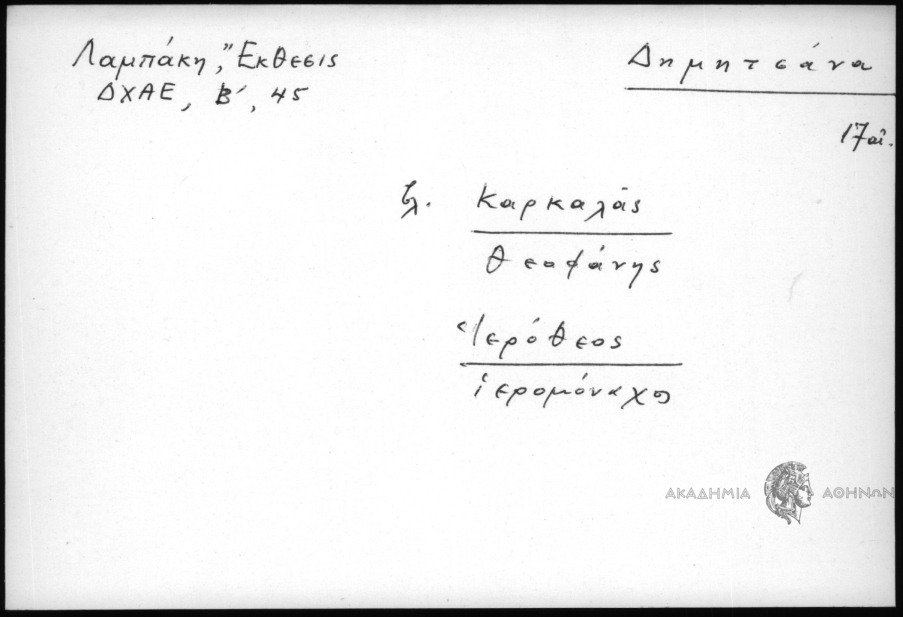 Λαμπάκη, Ἔκθεσις
ΔΧΑΕ, Β´, 45
Δημητσάνα
17 αἰ.
βλ. Καρκαλᾶς
Θεοφάνης
Ἱερόθεος
ἱερομόναχος
ΑΚΑΔΗΜΙΑ ΑΘΗΝΩΝ